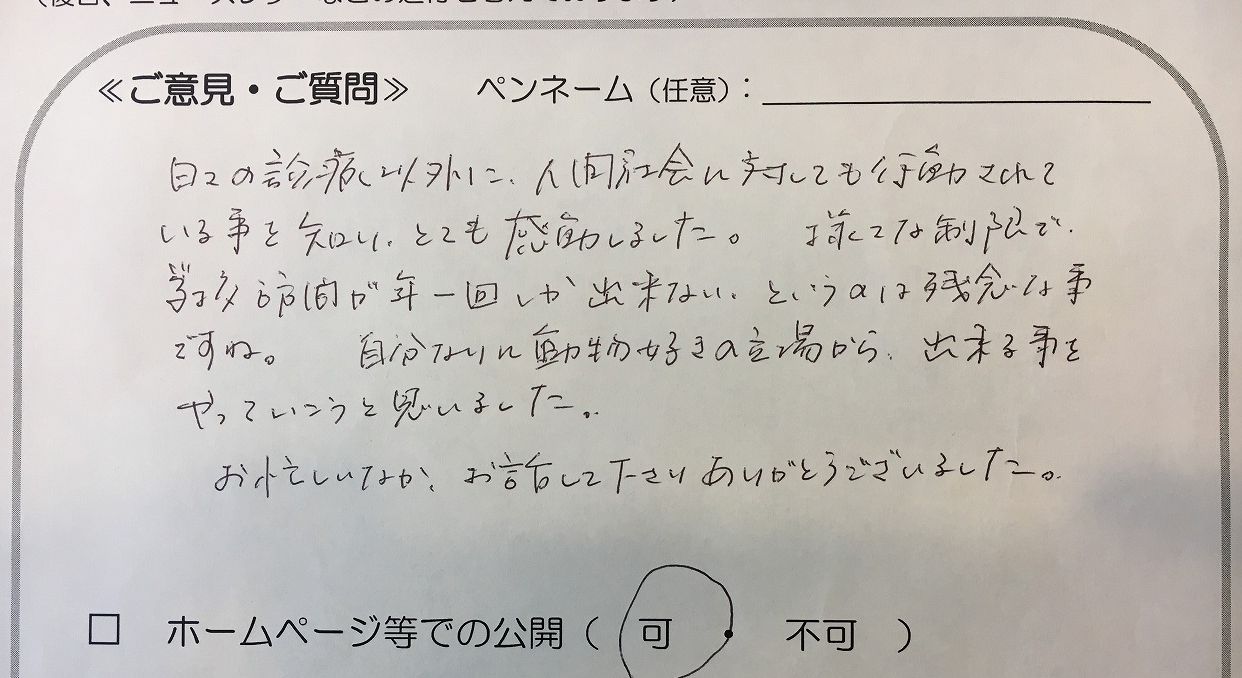 ≪ご意見・ご質問≫　ペンネーム（任意）：
日々の診療以外に、人間社会に対しても行動されて
いる事を知り、とても感動しました。　様々な制限で、
学校訪問が年一回しか出来ない、というのは残念な事
ですね。　自分なりに動物好きの立場から、出来る事を
やっていこうと思いました。
お忙しいなか、お話して下さりありがとうございました。
□　ホームページ等での公開（　可　・　不可　）